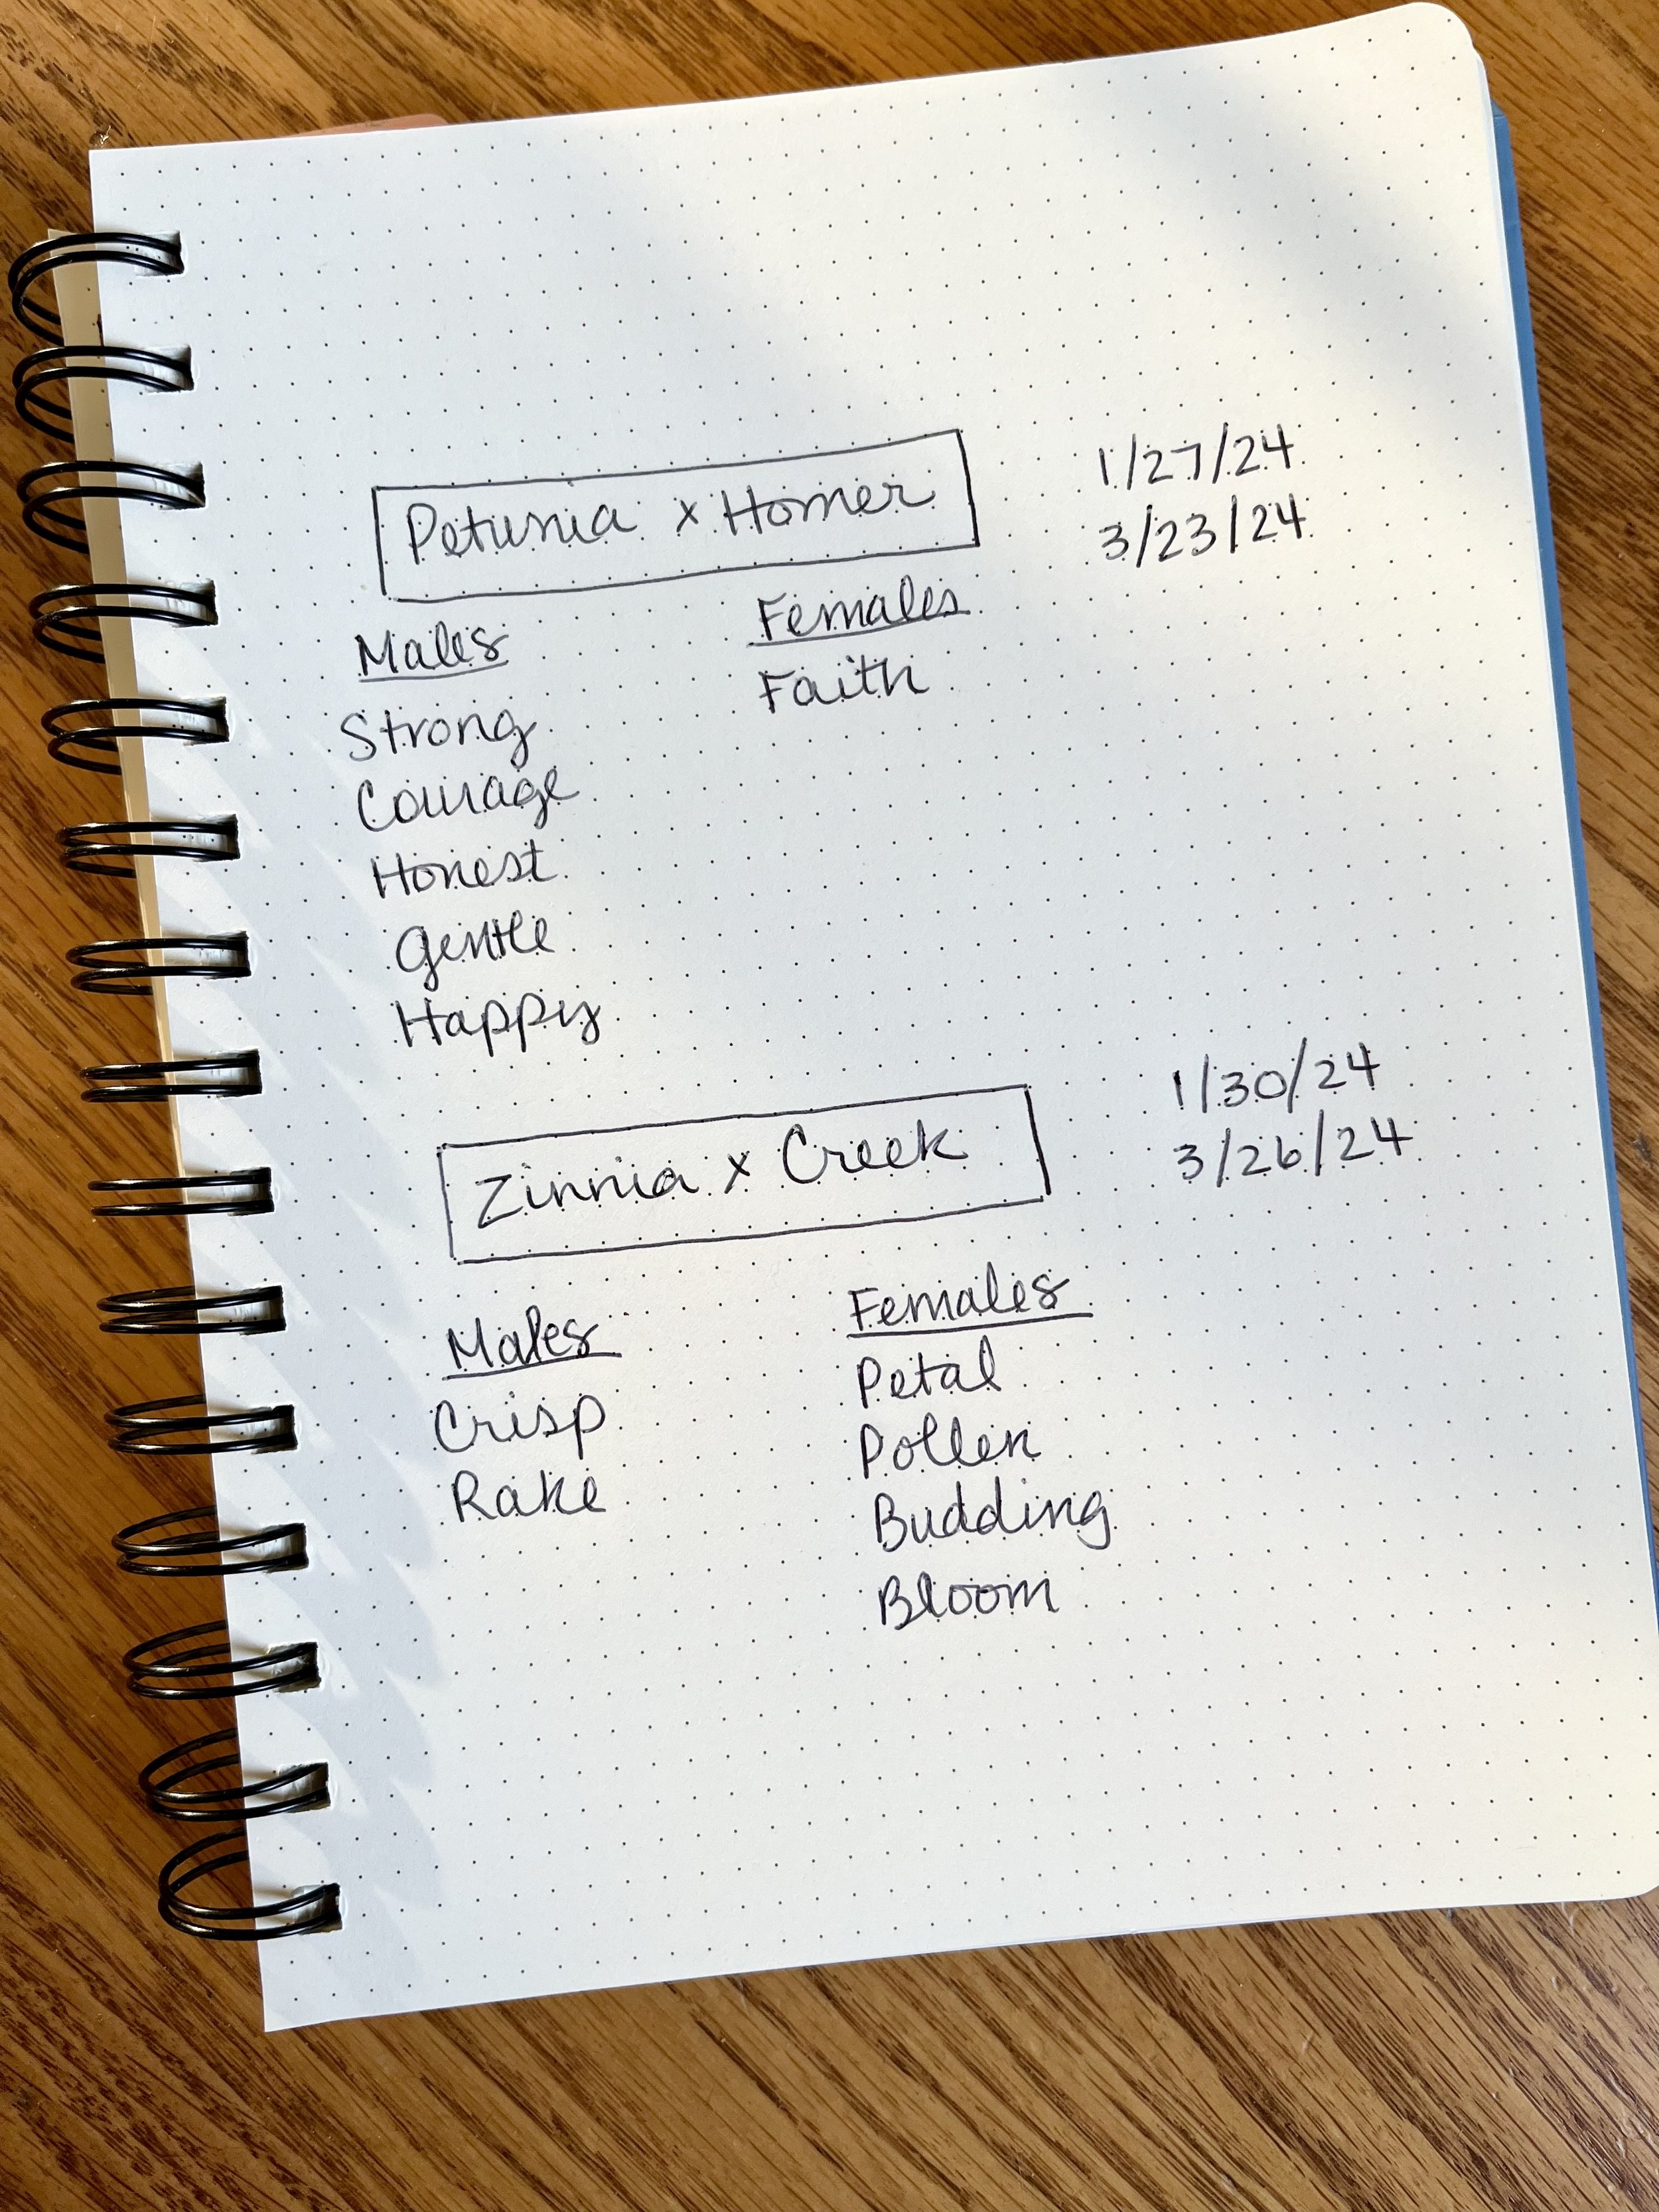 Petunia x Homer 1/27/24
3/23/24
Males Females
Strong Faith
Courage
Honest
Gentle
Happy
Zinnia x Creek 1/30/24
3/26/24
Males Females
Crisp Petal
Rake Pollen
Budding
Bloom